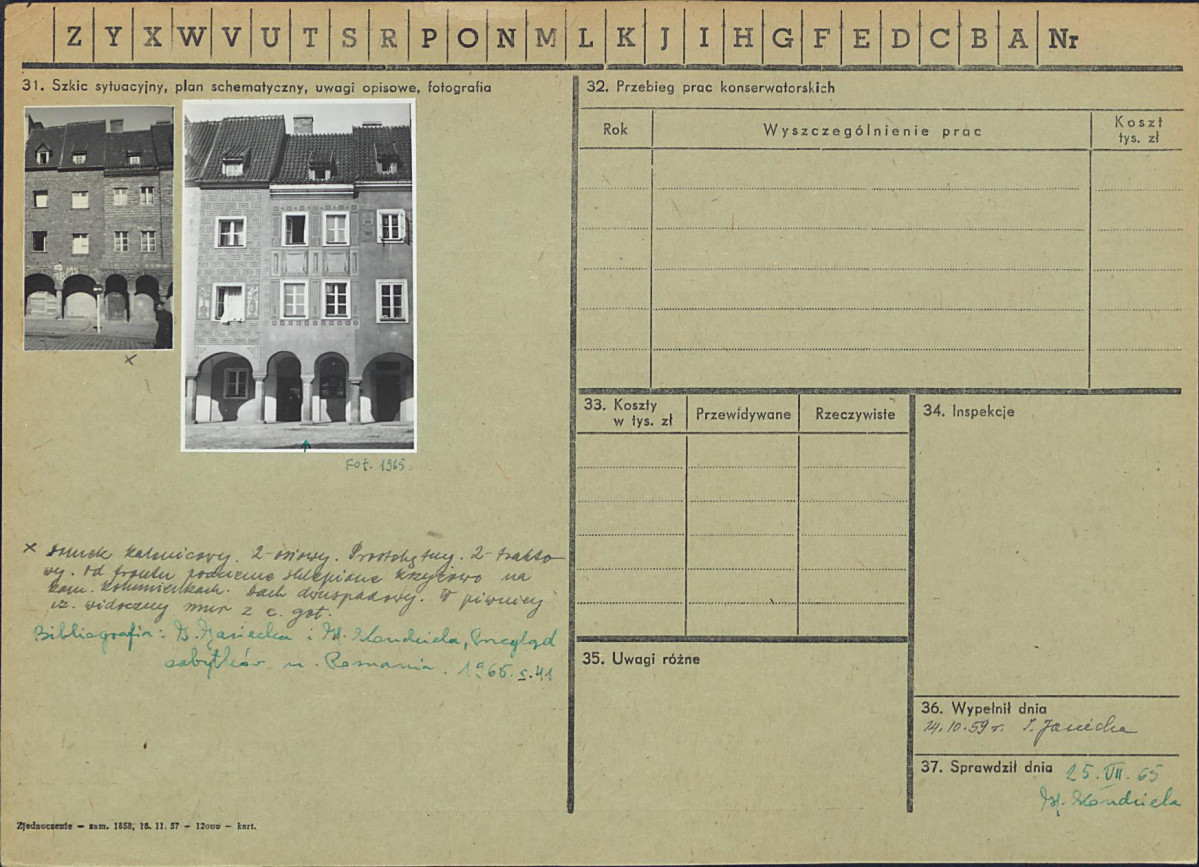 Z Y X W V U T S R P O N M L K J I H G F E D C B A Nr
31. Szkic sytuacyjny, plan schematyczny, uwagi opisowe, fotografia
×
Fot. 1965
× Domek kalenicowy. 2-osiowy. Prostokątny. 2-trakto-
wy. Od frontu podcienie sklepione krzyżowo na
kam. kolumienkach. Dach dwuspadowy. W piwnicy
widoczny mur z c. got.
Bibliografia: i H. Kondziela, Przegląd
zabytków m. Poznania. 1965. s. 41
32. Przebieg prac konserwatorskich
Rok
Wyszczególnienie prac
Koszt
tys. zł
33. Koszty
w tys. zł
Przewidywane
Rzeczywiste
34. Inspekcje
35. Uwagi różne
36. Wypełnił dnia
14.10.59 r. I. Jasiecka
37. Sprawdził dnia 25. VII. 65
H. Kondziela
Zjednoczenie — zam. 1858, 18. 11. 57 — 12000 — kart.